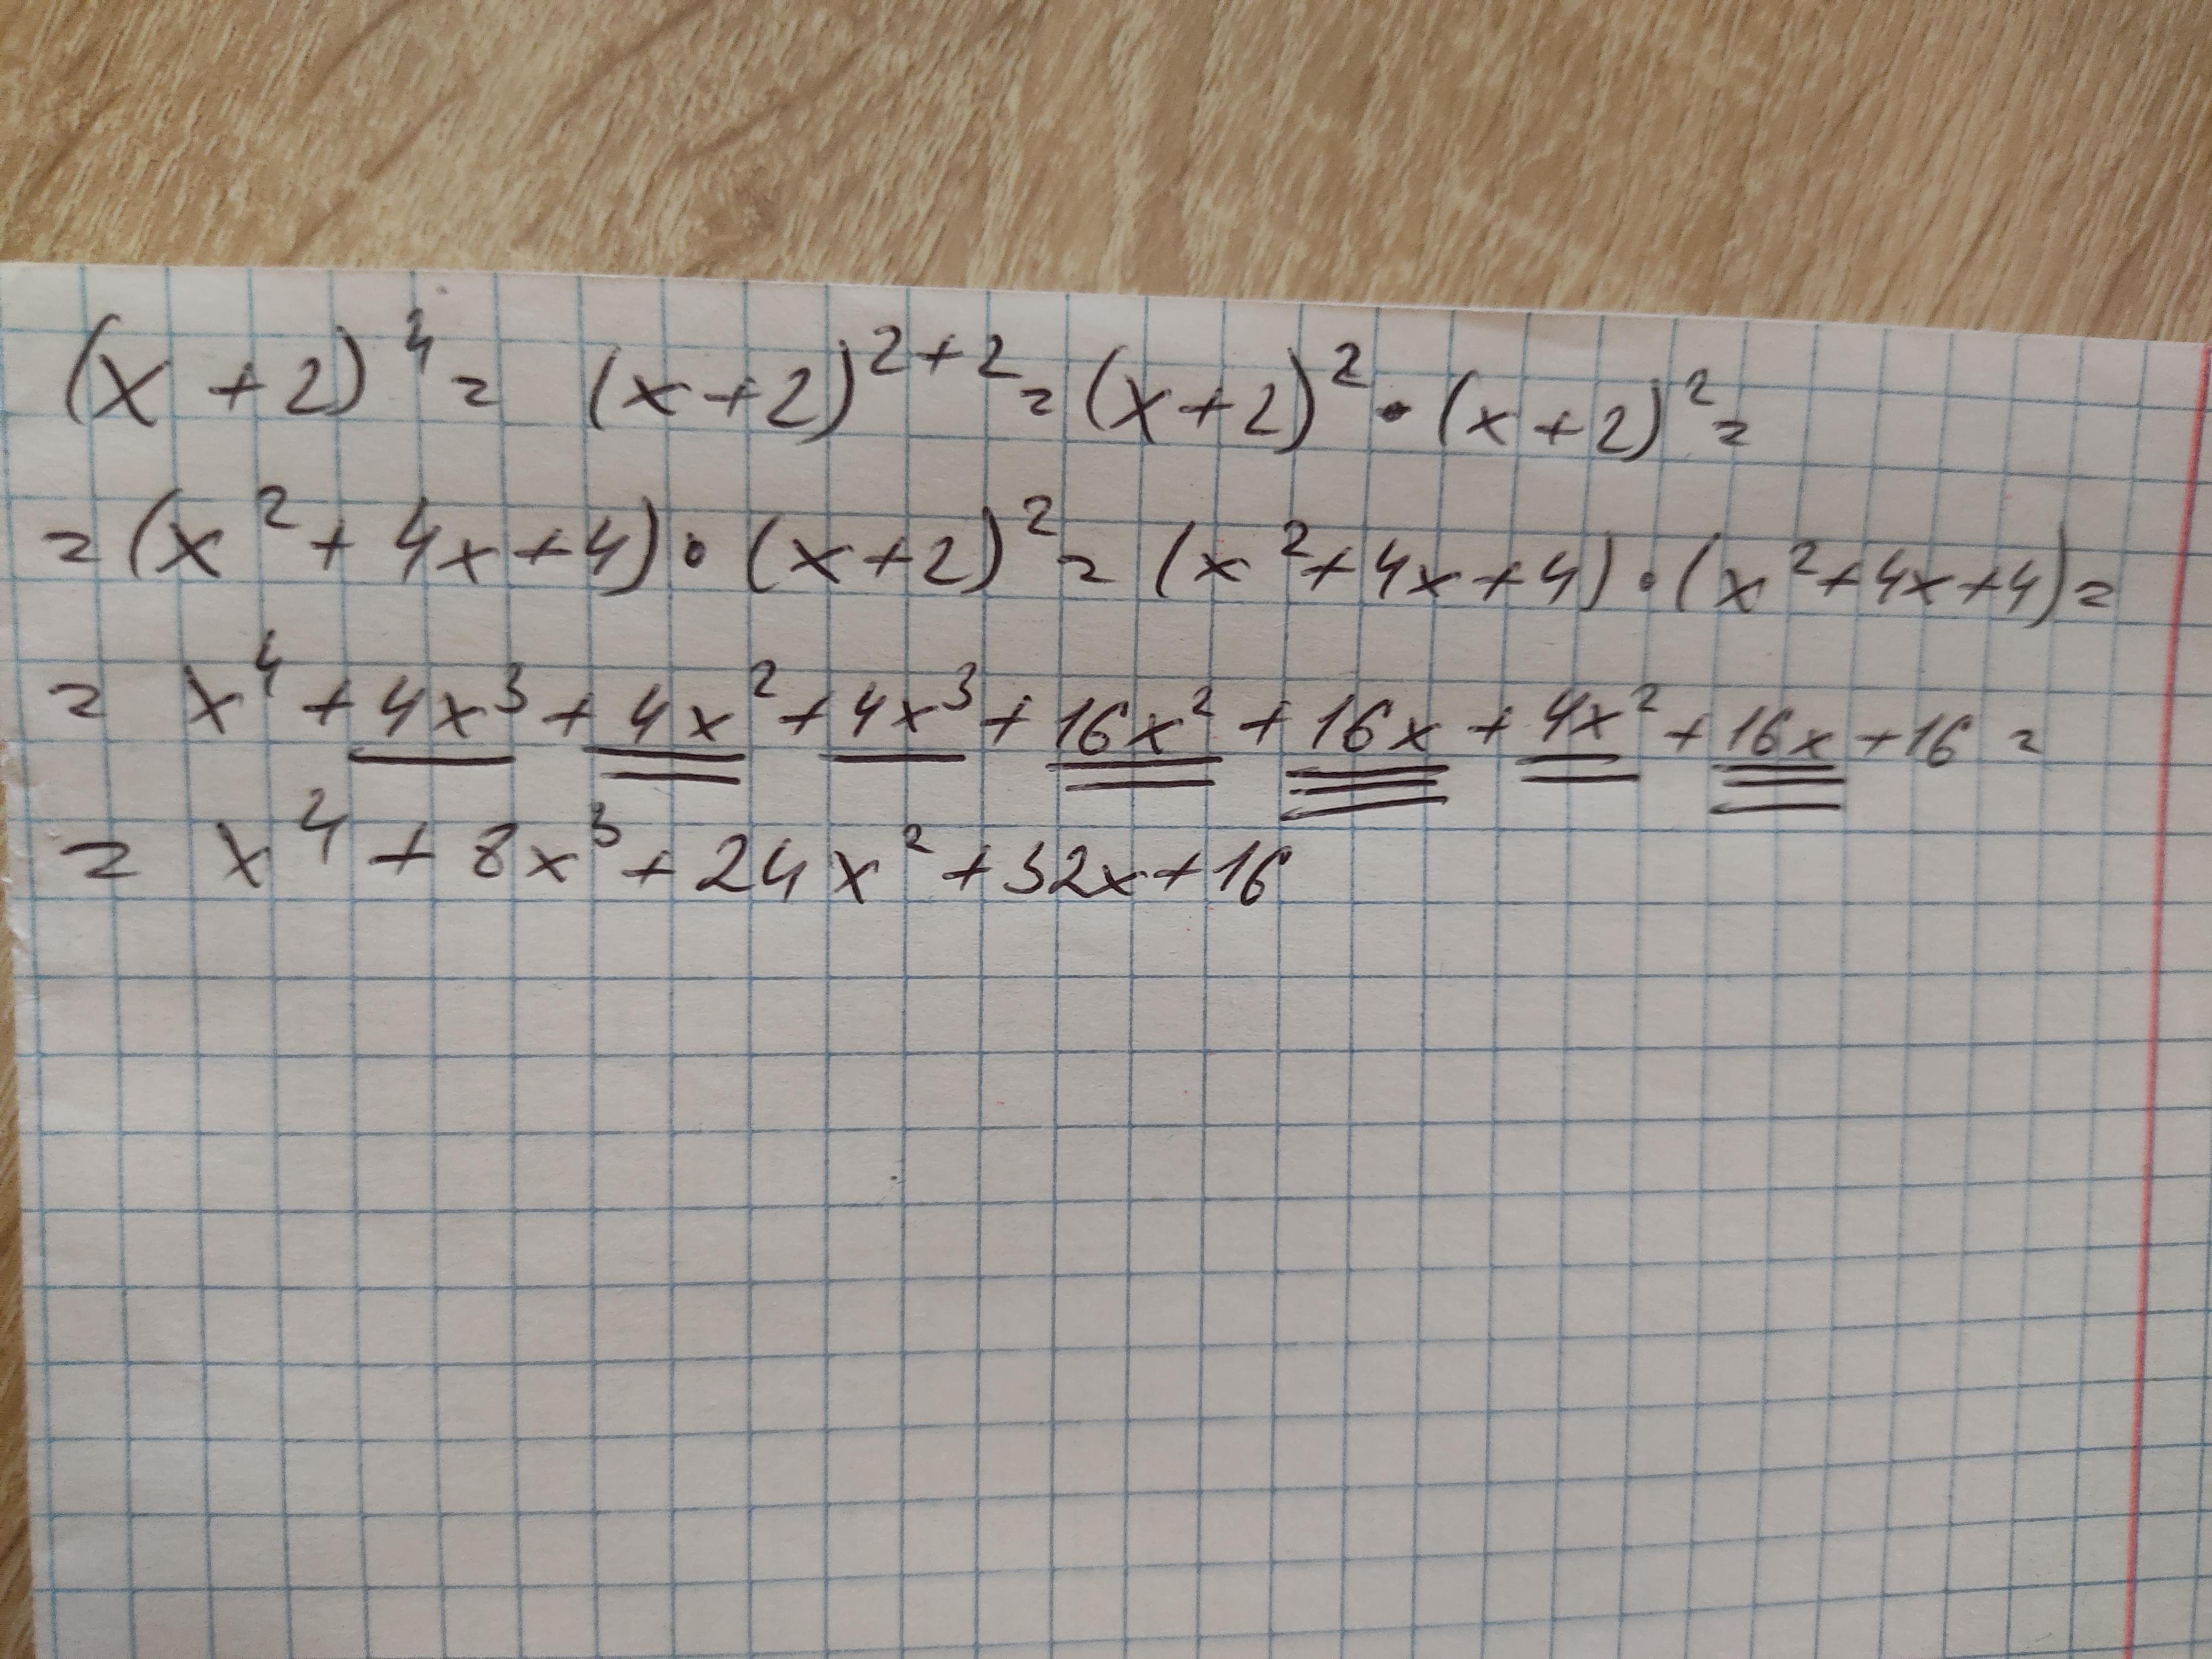 (x+2)⁴ = (x+2)²⁺² = (x+2)² · (x+2)² =
= (x²+4x+4) · (x+2)² = (x²+4x+4) · (x²+4x+4) =
= x⁴+4x³+4x²+4x³+16x²+16x+4x²+16x+16 =
= x⁴+8x³+24x²+32x+16